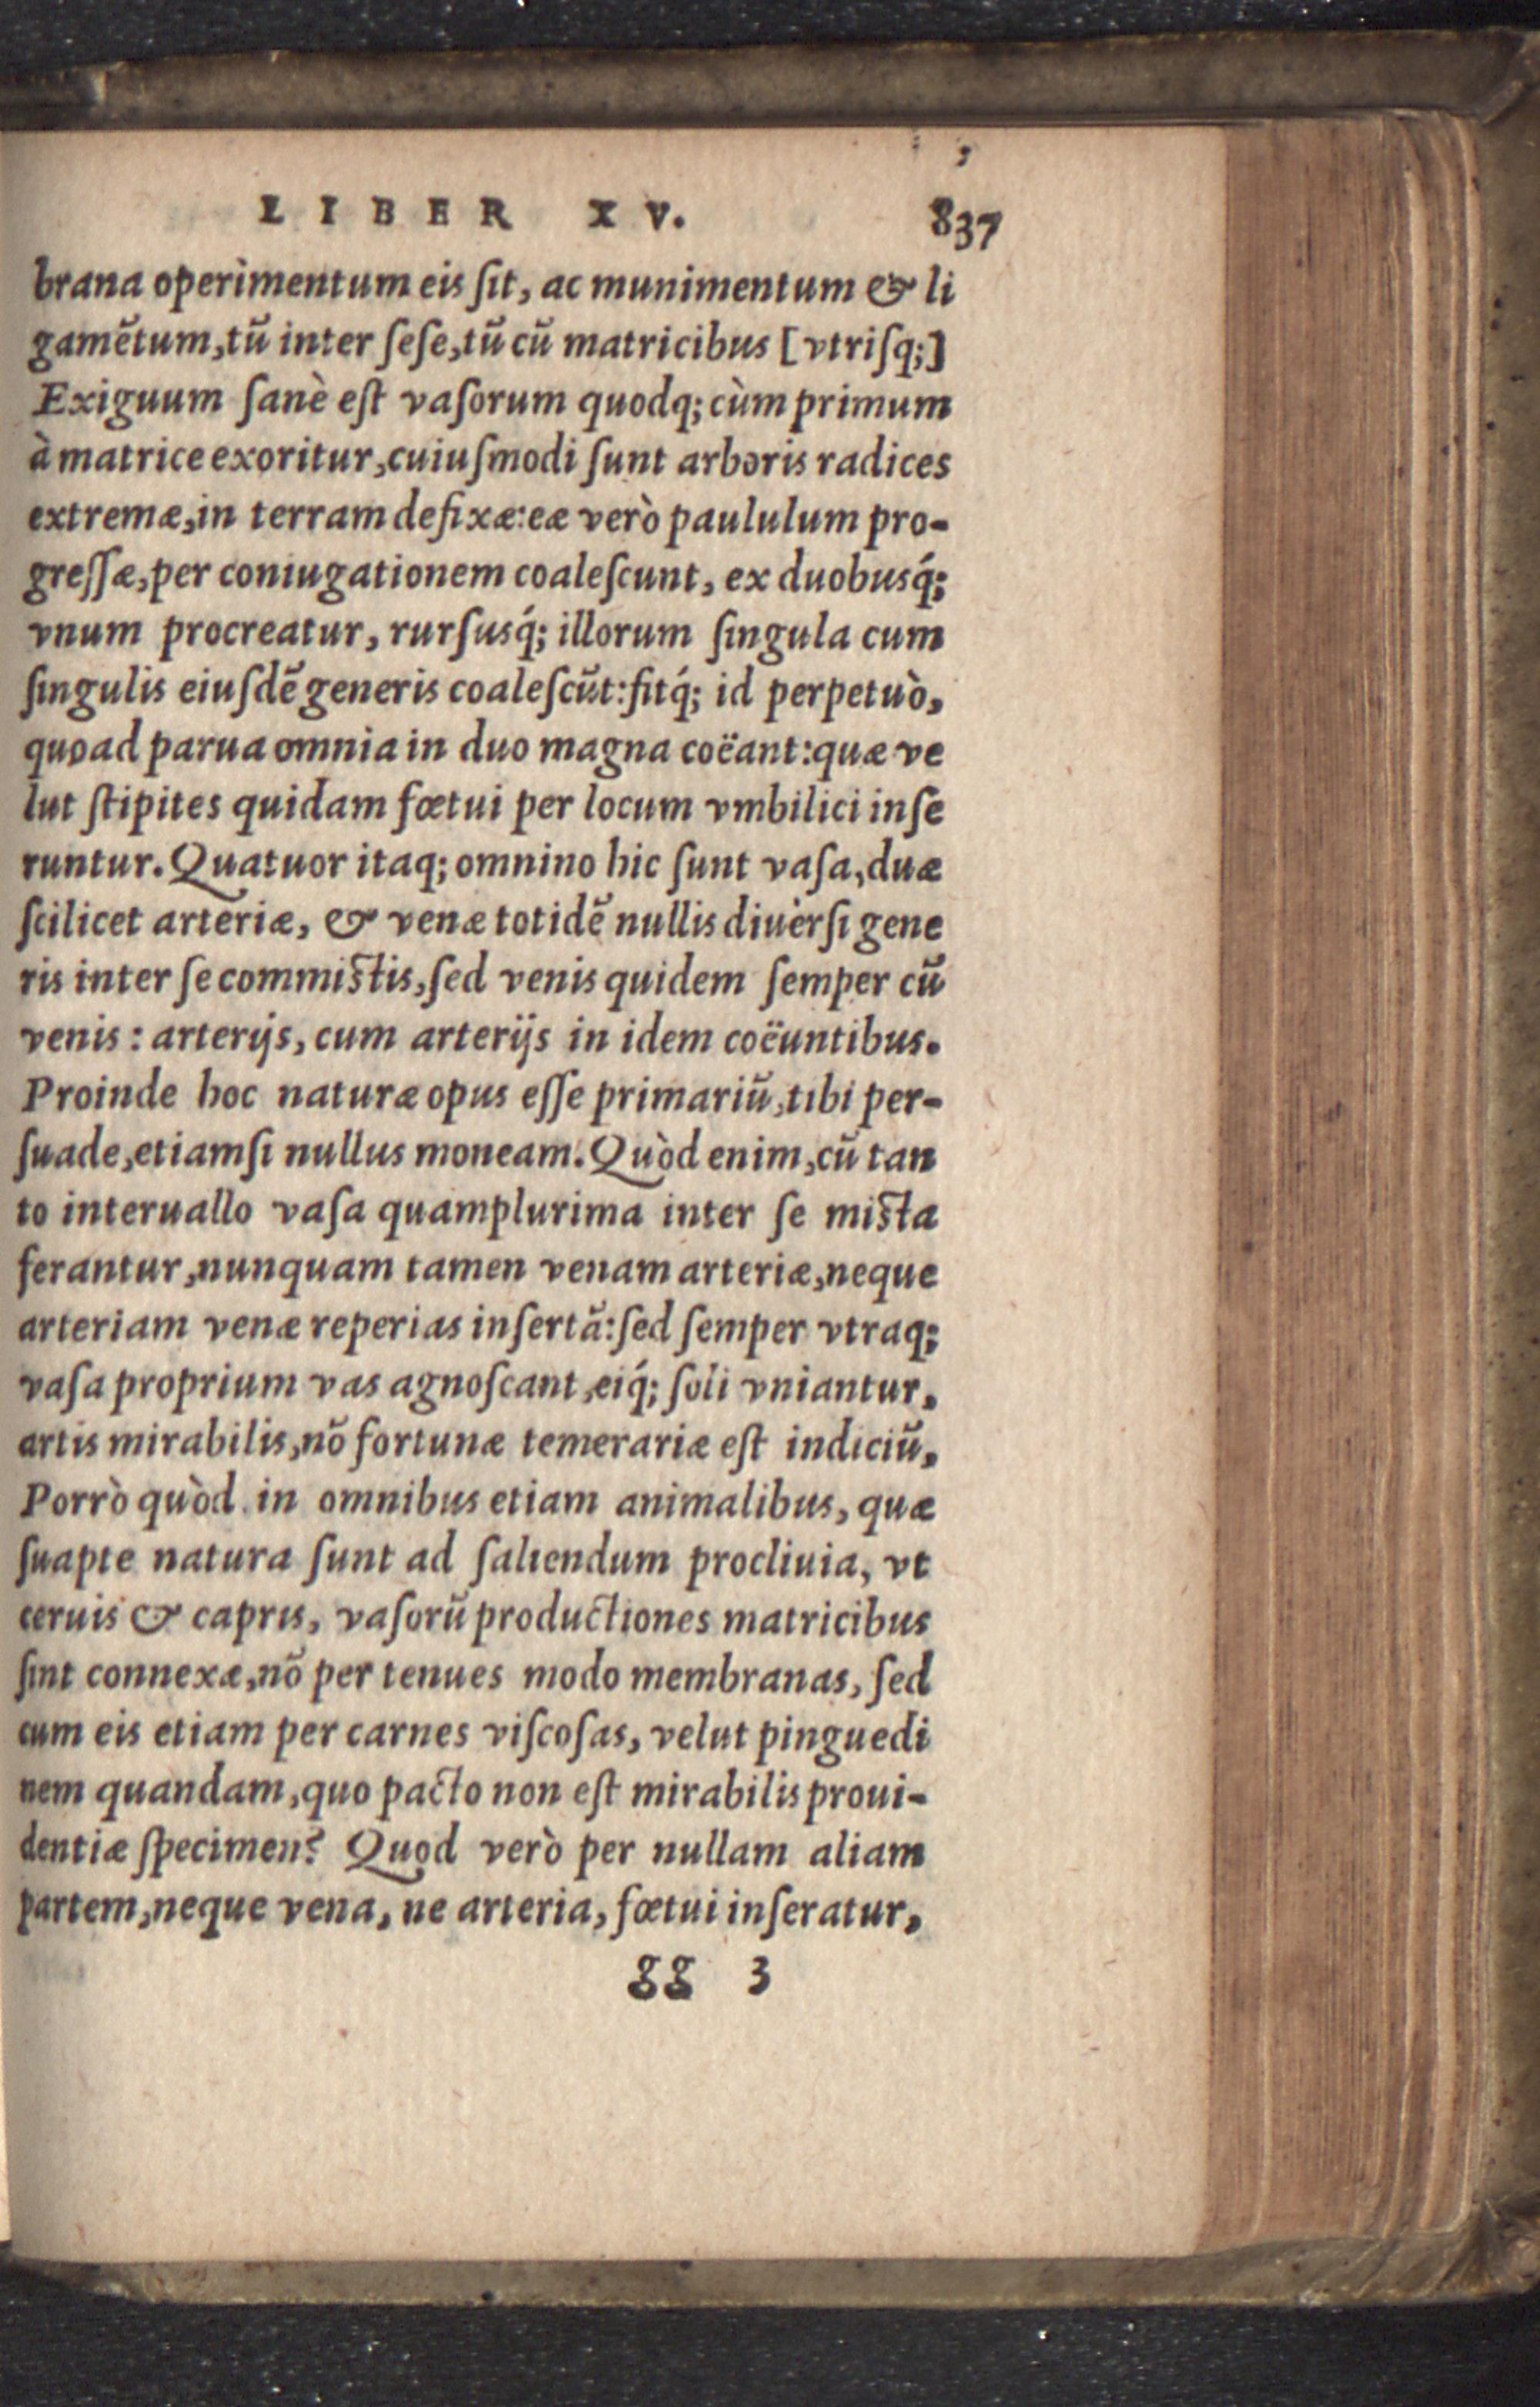 LIBER XV. 837
brana operimentum eis ſit, ac munimentum & li
gamẽtum, tũ inter ſeſe, tũ cũ matricibus [vtriſq;]
Exiguum ſanè eſt vaſorum quodq; cùm primum
à matrice exoritur, cuiuſmodi ſunt arboris radices
extremæ, in terram defixæ: eæ verò paululum pro-
greſſæ, per coniugationem coaleſcunt, ex duobusq́;
vnum procreatur, rurſusq́; illorum ſingula cum
ſingulis eiuſdẽ generis coaleſcũt: fitq́; id perpetuò,
quoad parua omnia in duo magna coëant: quæ ve
lut ſtipites quidam fœtui per locum vmbilici inſe
runtur. Quatuor itaq; omnino hic ſunt vaſa, duæ
ſcilicet arteriæ, & venæ totidẽ nullis diuerſi gene
ris inter ſe commiſtis, ſed venis quidem ſemper cũ
venis: arterijs, cum arterijs in idem coëuntibus.
Proinde hoc naturæ opus eſſe primariũ, tibi per-
ſuade, etiamſi nullus moneam. Quòd enim, cũ tan
to interuallo vaſa quamplurima inter ſe miſta
ferantur, nunquam tamen venam arteriæ, neque
arteriam venæ reperias inſertã: ſed ſemper vtraq;
vaſa proprium vas agnoſcant, eiq́; ſoli vniantur,
artis mirabilis, nõ fortunæ temerariæ eſt indiciũ,
Porrò quòd in omnibus etiam animalibus, quæ
ſuapte natura ſunt ad ſaliendum procliuia, vt
ceruis & capris, vaſorũ productiones matricibus
ſint connexæ, nõ per tenues modo membranas, ſed
cum eis etiam per carnes viſcoſas, velut pinguedi
nem quandam, quo pacto non eſt mirabilis proui-
dentiæ ſpecimen? Quod verò per nullam aliam
partem, neque vena, ne arteria, fœtui inſeratur,
gg 3